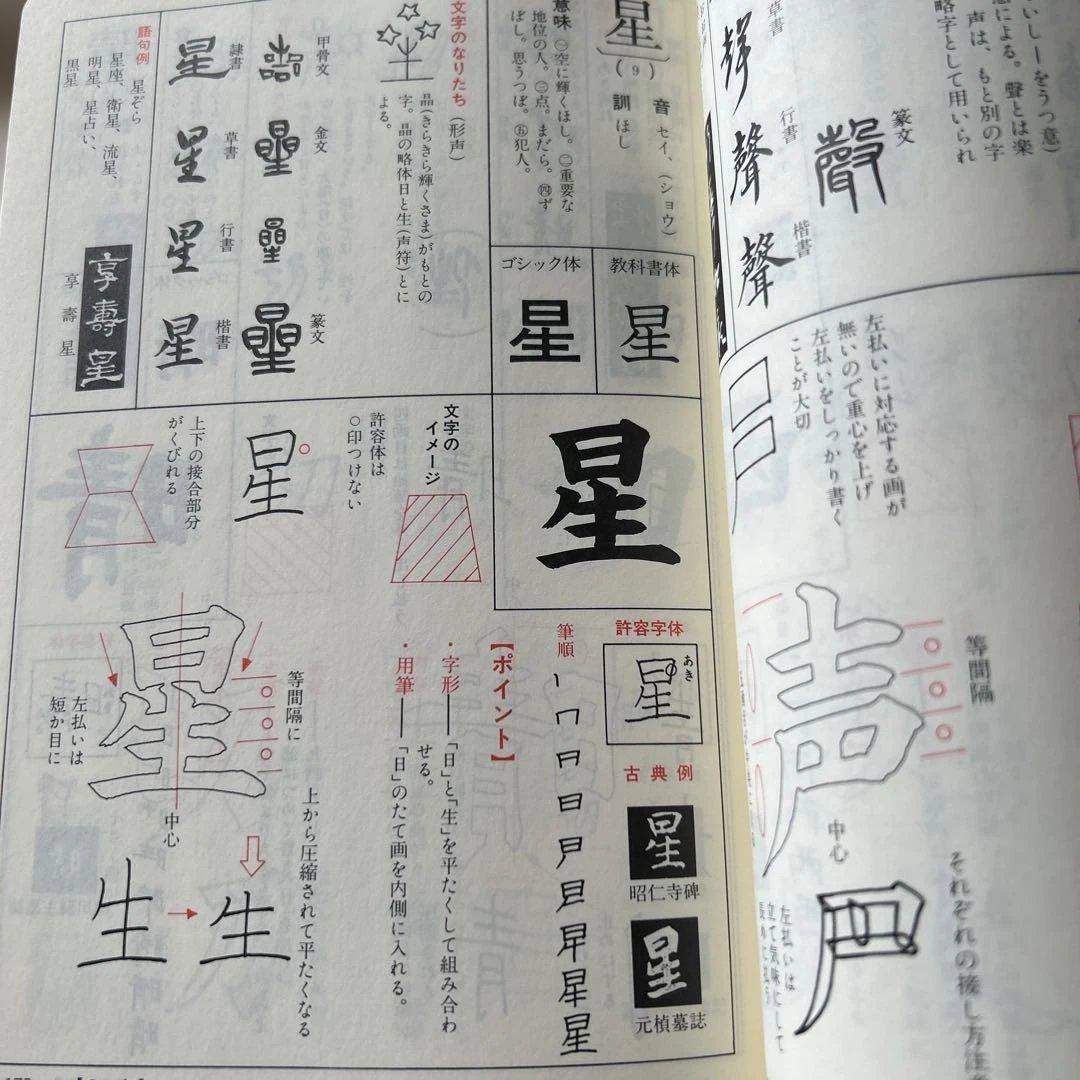 いしーをうつ意)
意による。聲とは楽
声は、もと別の字
略字として用いられ
草書
行書
楷書
篆文
聲
聲
聲
聲
左払いに対応する画が
無いので重心を上げ
左払いをしっかり書く
ことが大切
声
等間隔
中心
左払いは
立て気味にして
それぞれの接し方注意
星
(9)
音 セイ、(ショウ)
訓 ほし
意味 ㊀空に輝くほし。㊁重要な
地位の人。㊂点。まだら。㊃ず
ぼし。思うつぼ。㊄犯人。
教科書体
星
ゴシック体
星
文字のなりたち (形声)
晶(きらきら輝くさま)がもとの
字。晶の略体日と生(声符)とに
よる。
甲骨文
金文
篆文
隷書
星
草書
星
行書
星
楷書
星
語句例
星ぞら
星座、衛星、流星、
明星、星占い、
黒星
享壽星
享壽星
星
許容字体
星
あき
古典例
星
昭仁寺碑
星
元楨墓誌
筆順
星
【ポイント】
・字形――「日」と「生」を平たくして組み合わ
せる。
・用筆――「日」のたて画を内側に入れる。
文字の
イメージ
許容体は
○印つけない
星
上下の接合部分
がくびれる
星
等間隔に
左払いは
短か目に
中心
上から圧縮されて平たくなる
生
生